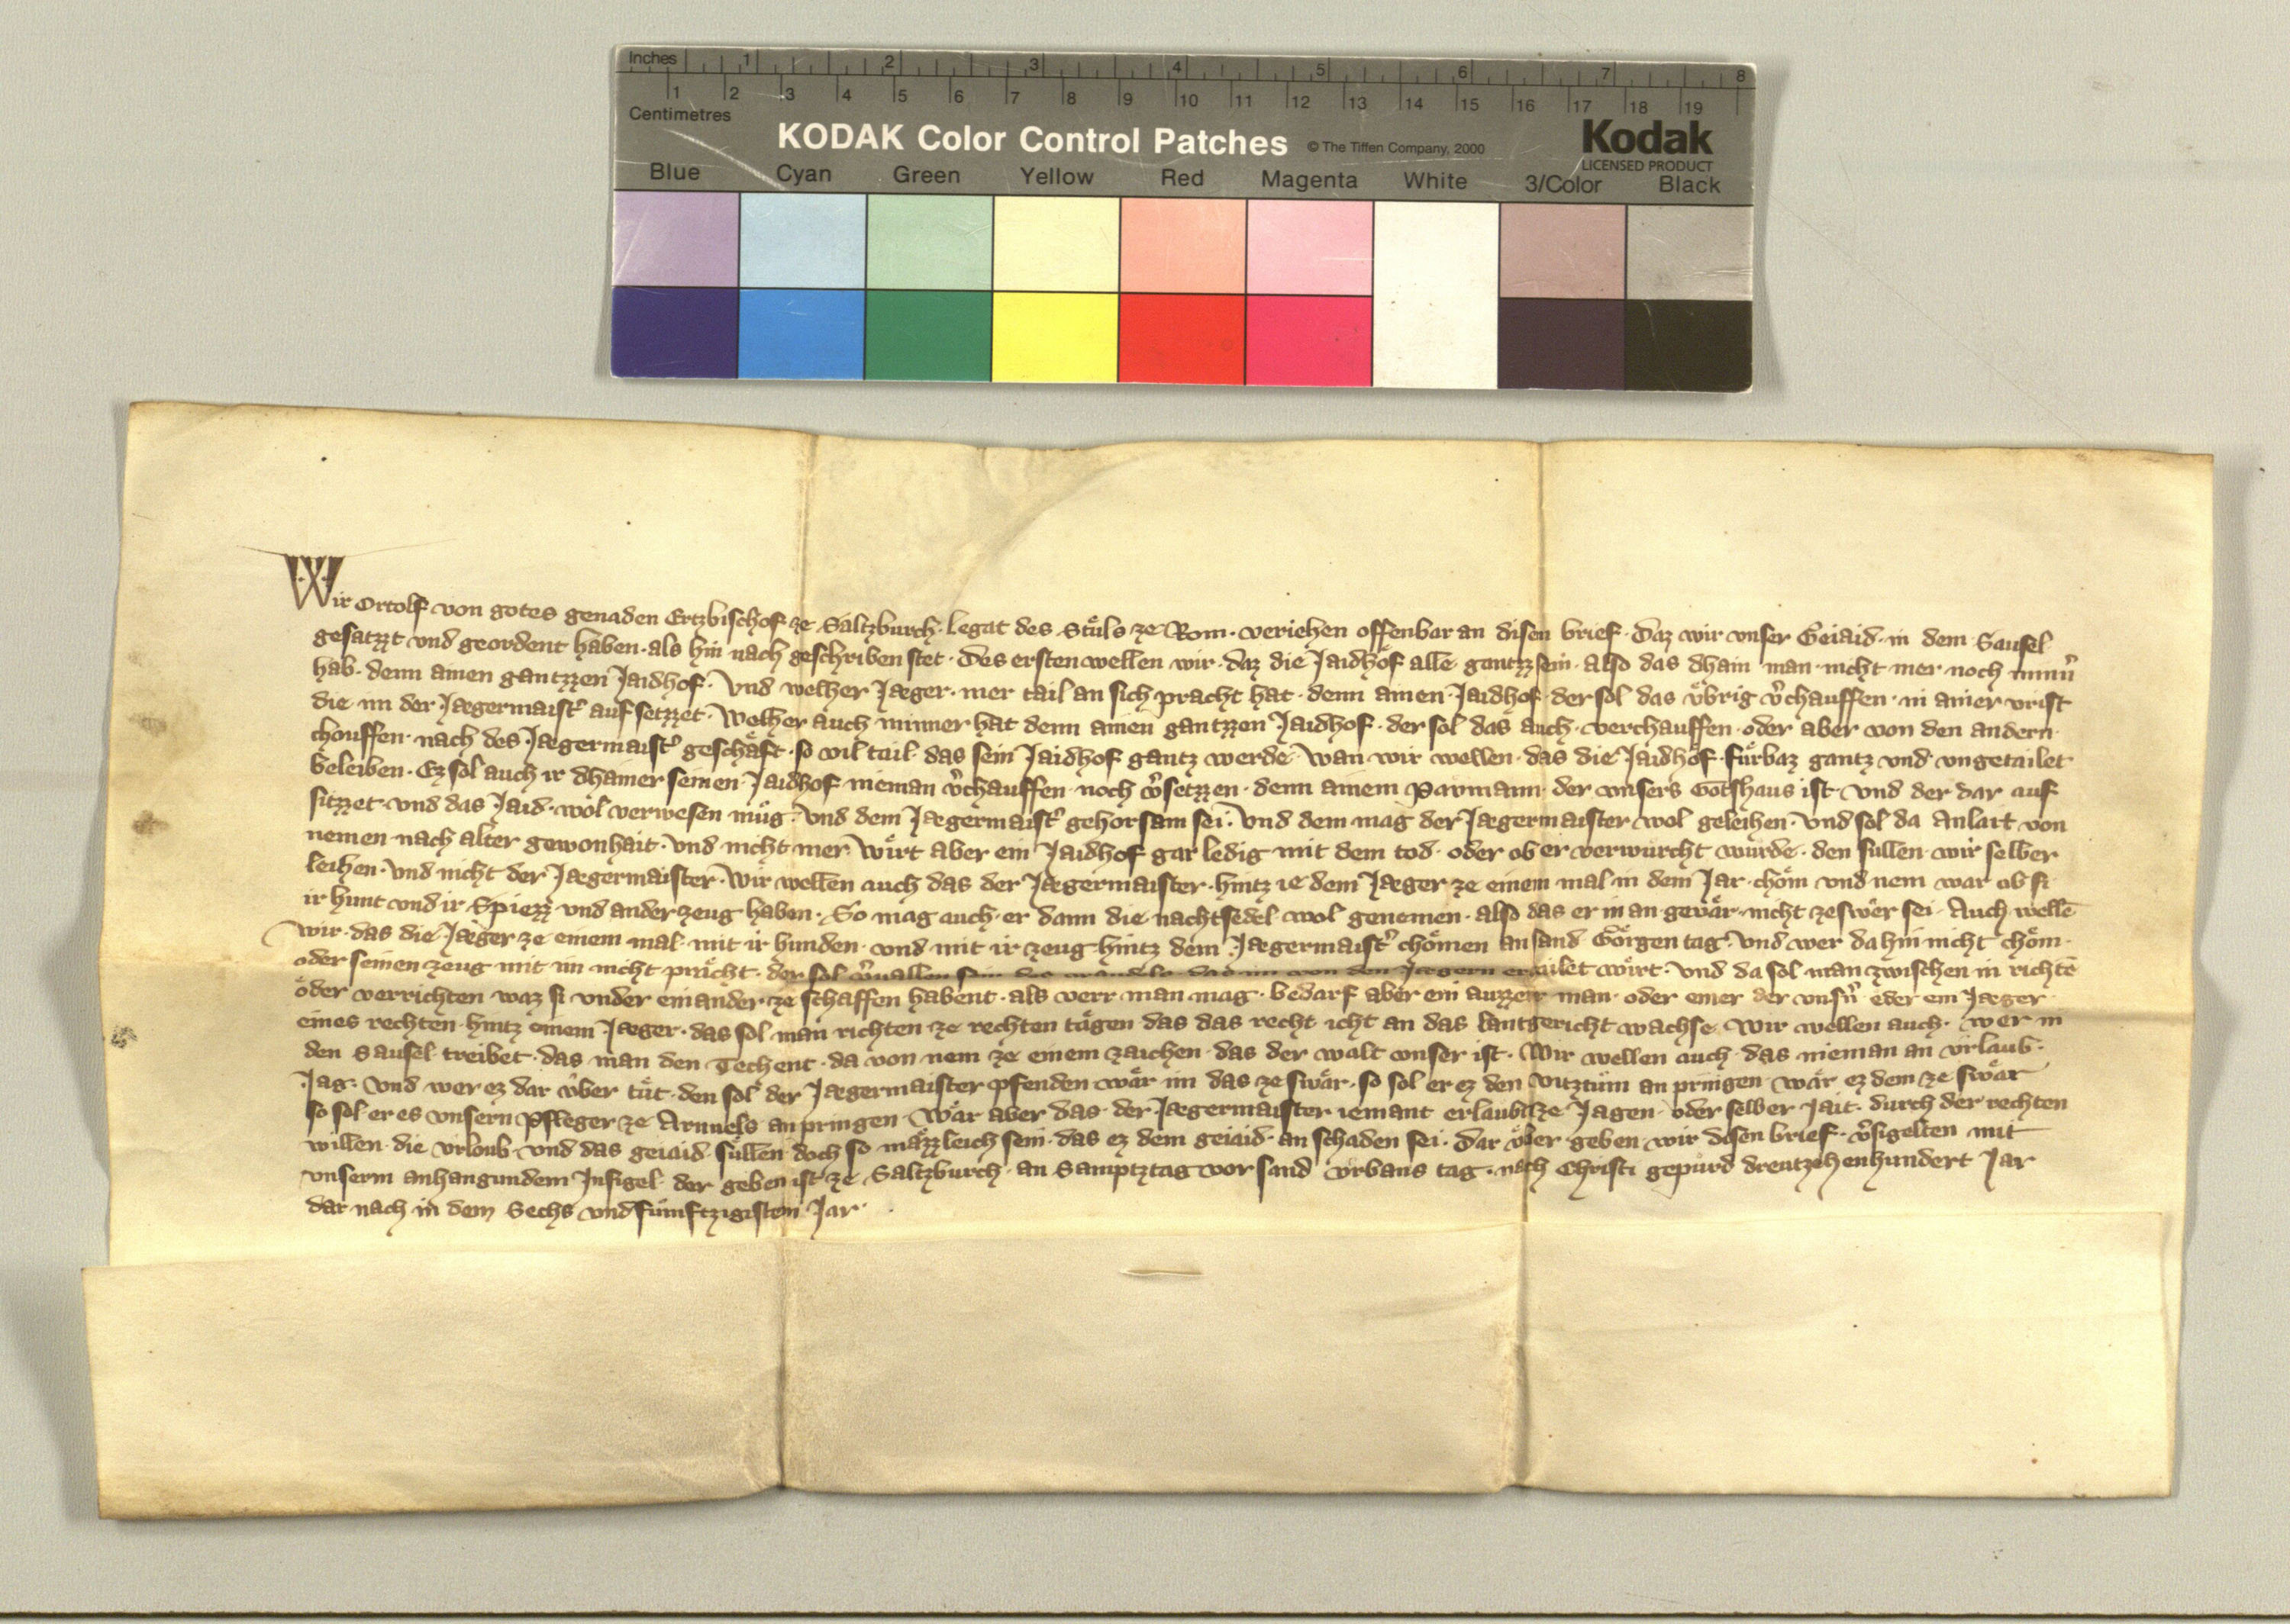 Inches 1 2 3 4 5 6 7 8
1 2 3 4 5 6 7 8 9 10 11 12 13 14 15 16 17 18 19
Centimetres
KODAK Color Control Patches © The Tiffen Company, 2000 Kodak
LICENSED PRODUCT
Blue Cyan Green Yellow Red Magenta White 3/Color Black
Wir Ortolf von gotes genaden Ertzbischof ze Saltzburch· legat des Stůls ze Rom· veriehen offenbar an disem brief· daz wir vnser Geiaid· in dem Sausel
gesatzzt vnd geordent haben· als hin nach geschriben stet· Des ersten wellen wir· daz die Jaidhöf alle gantzz sein· also das dhain man· nicht mer· noch minn̄
hab· denn ainen gantzzen Jaidhof· Vnd welher Jæger· mer tail an sich pracht hat· denn ainen Jaidhof· der sol das v̈brig v̄chauffen· in ainer vrist
die im der Jægermaist̄ auf setzzet· Welher auch minner hat denn ainen gantzzen Jaidhof· der sol das auch· verchauffen· oder aber von den andern
chouffen· nach des Jægermaist̄ geschäft· so vil tail· das sein Jaidhof gantz werde· wan wir wellen· das die Jaidhöf· fürbaz gantz vnd vngetailet
beleiben· Ez sol auch ir dhainer seinen Jaidhof nieman v̄chauffen· noch v̄setzzen· denn ainem Paumann· der vnsers Gotshaus ist· vnd der dar auf
sitzzet· vnd das Jaid· wol verwesen müg· Vnd dem Jægermaist̄ gehorsam sei· Vnd dem mag der Jægermaister wol geleihen· Vnd sol da Anlait von
nemen nach alter gewonhait· vnd nicht mer· Wirt aber ein Jaidhof gar ledig mit dem tod· oder ob er verwürcht würde· den süllen wir selber
leihen· Vnd nicht der Jægermaister· Wir wellen auch das der Jægermaister· hintz ie dem Jæger ze einem mal in dem Jar· chöm vnd nem war ob si
ir hunt vnd ir Spiezz· vnd ander zeug haben· So mag auch er dann die nachtsedel wol genemen· also das er in an gevär· nicht ze swer sei· Auch welle̅
wir· das die Jæger ze einem mal· mit ir hunden· vnd mit ir zeug· hintz dem Jægermaist̄ chömen an sand Görgen tag· Vnd wer da hin nicht chöm·
oder seinen zeug mit im nicht prächt· der sol v̄uallen sein des wandels das im von den Jægern ertailet wirt· Vnd da sol man zwischen in richte̅
oder verrichten waz si vnder einander ze schaffen habent· als verr man mag· Bedarf aber ein auzzer man· oder einer der vnsn̄ oder ein Jæger
eines rechten hintz einem Jæger· das sol man richten ze rechten tägen das das recht icht an das lantgericht wachse· Wir wellen auch· wer in
den Sausel treibet· das man den Techent· da von nem ze einem zaichen· das der walt vnser ist· Wir wellen auch das nieman an vrlaub·
Jag· Vnd wer ez dar v̈ber tüt· den sol der Jægermaister pfenden· wär im das ze swär· so sol er ez den vitztum an pringen· wär ez dem ze swär
so sol er es vnsern Pfleger ze Arnuels an pringen· Wär aber das· der Jægermaister iemant erlaubt ze Jagen· oder selber jait· durch der rechten
willen· die vrloub· vnd das geiaid· süllen doch so mäzzleich sein· das ez dem geiaid· an schaden sei· Dar v̈ber geben wir disen brief· v̄sigelten mit
vnserm anhangundem Insigel· der geben ist ze Saltzburch· an Samptztag vor sand vrbans tag· nach Christi gepurd dreutzehenhundert Jar
dar nach in dem Sechs vnd fümftzigistem Jar·